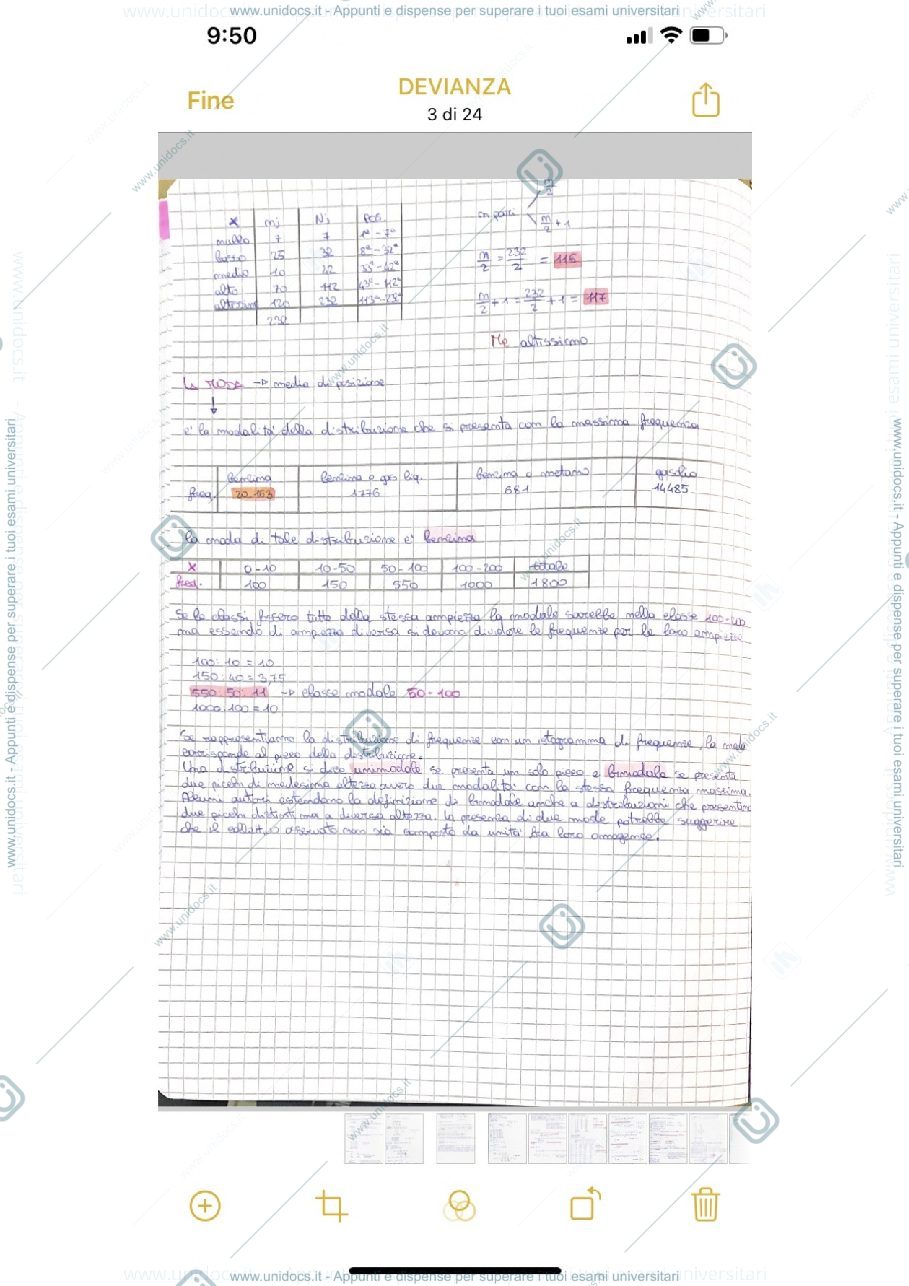 www.unidocs.it - Appunti e dispense per superare i tuoi esami universitari
9:50
Fine
DEVIANZA
3 di 24
X nj Nj Pos
nullo 7 7 1ª - 7ª
basso 25 32 8ª - 32ª
medio 10 42 33ª - 42ª
alto 70 112 43ª - 112ª
altissimo 120 232 113ª - 23
232
n pari
n/2
n/2 + 1
n/2 = 232/2 = 116
n/2 + 1 = 232/2 + 1 = 117
Me altissimo
La MODA -> media di posizione
è la modalità della distribuzione che si presenta con la massima frequenza
benzina benzina e gas liq. benzina e metano gasolio
freq. 20.163 1776 681 14485
la moda di tale distribuzione è benzina
X 0-10 10-50 50-100 100-200 totale
freq. 100 150 550 1000 1800
Se le classi fossero tutte della stessa ampiezza la modale sarebbe nella classe 100-200
ma essendo di ampiezza diversa si devono dividere le frequenze per le loro ampiezze
100:10 = 10
150:40 = 3,75
550:50 = 11 -> classe modale 50-100
1000:100 = 10
Se rappresentiamo la distribuzione di frequenze con un istogramma di frequenze la moda
corrisponde al picco della distribuzione.
Una distribuzione si dice unimodale se presenta un solo picco e bimodale se presenta
due picchi di medesima altezza ovvero due modalità con la stessa frequenza massima.
Alcuni autori estendono la definizione di bimodale anche a distribuzioni che presentano
due picchi distinti ma a diversa altezza. la presenza di due mode potrebbe suggerire
che il collettivo osservato non sia composto da unità tra loro omogenee.
www.unidocs.it - Appunti e dispense per superare i tuoi esami universitari